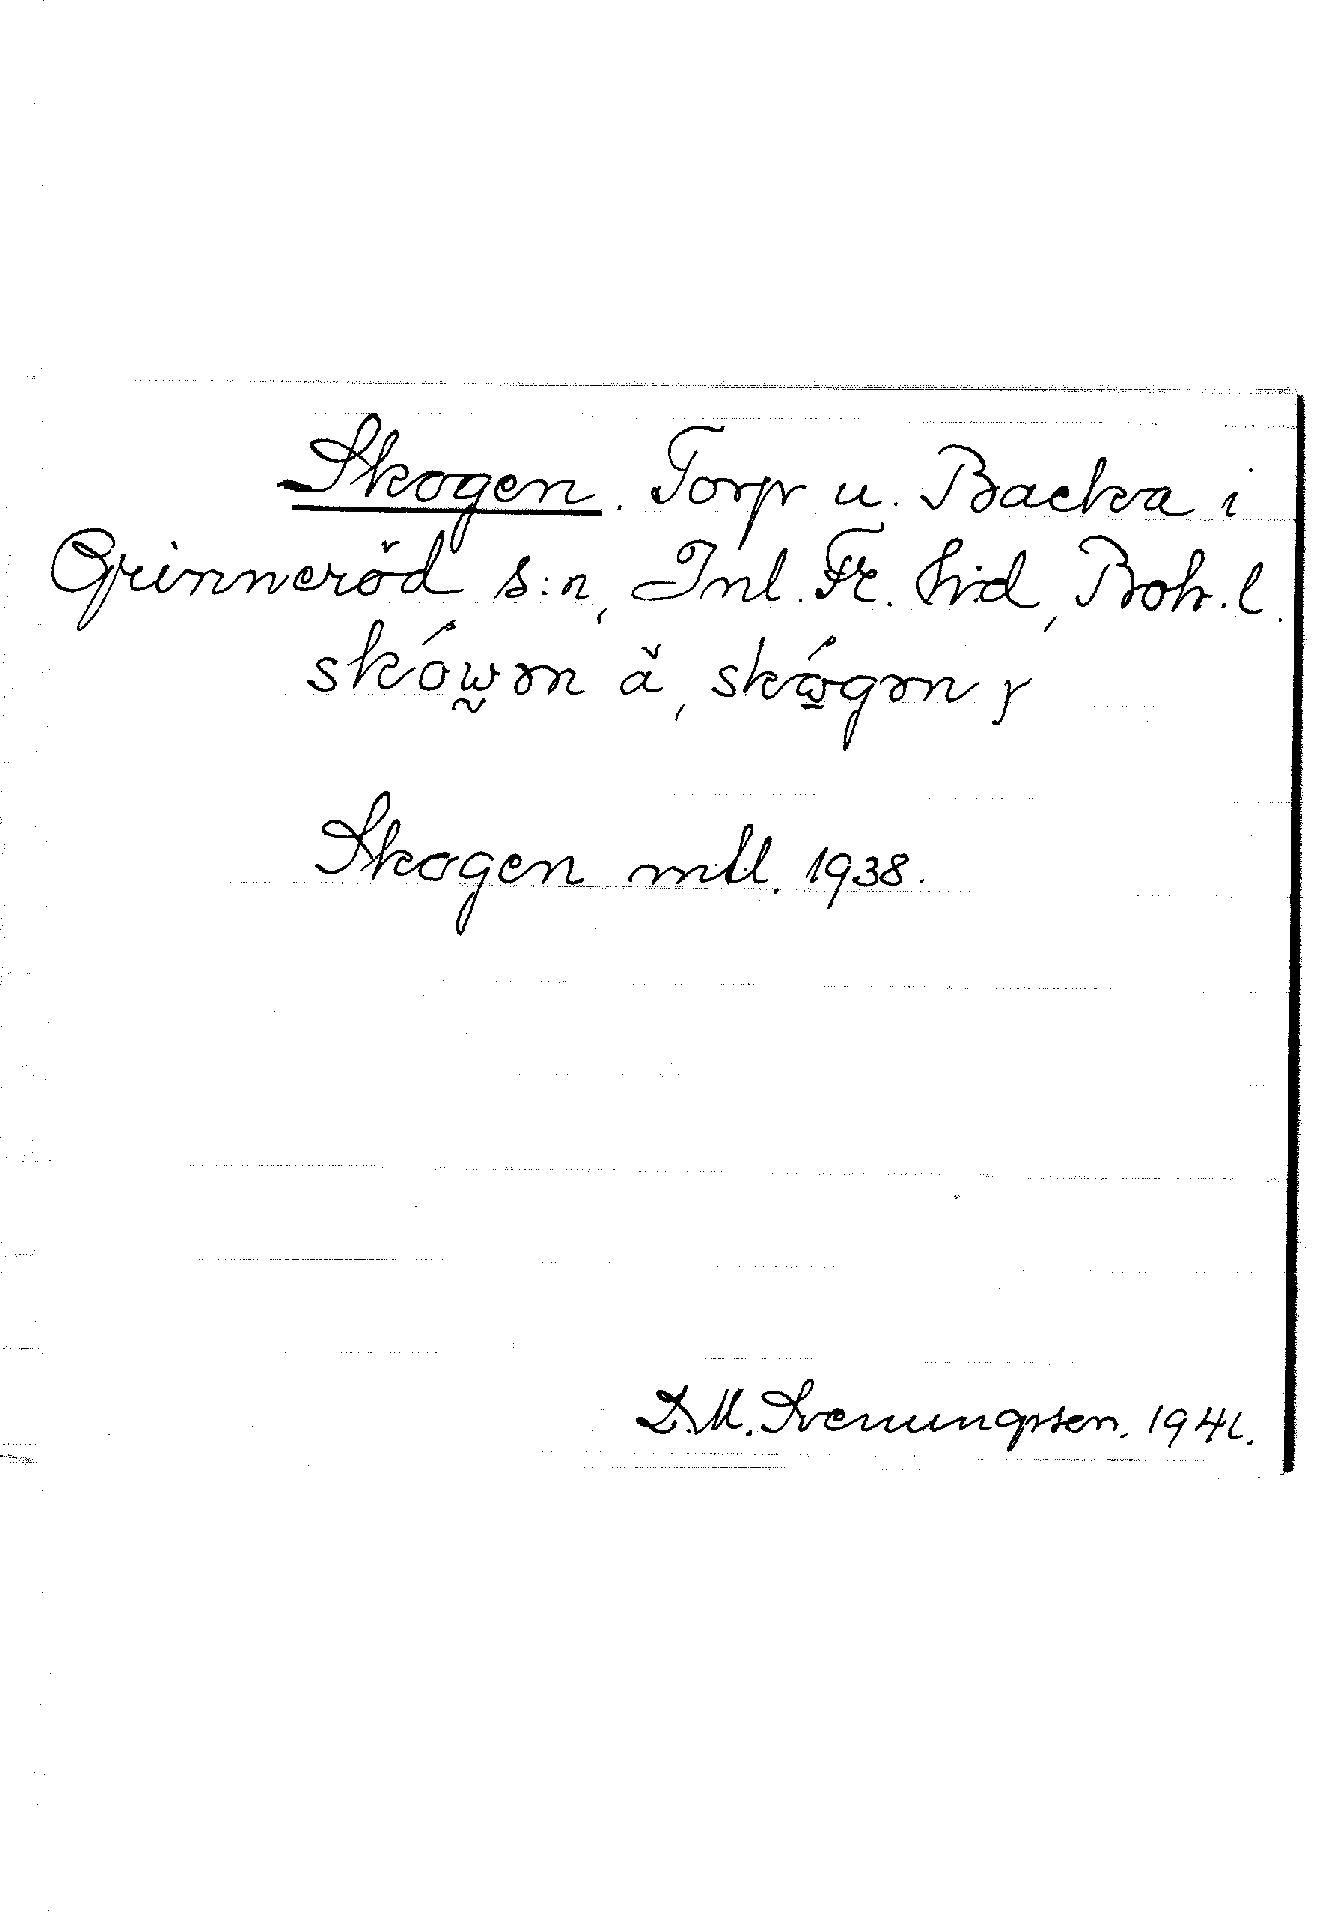 Skogen. Torp u. Backa i
Grinneröd s:n, Inl. Fr. hd, Boh. l.
skówən ä, skógən y
Skogen mtl. 1938.
D. M. Svenungsson. 1941.